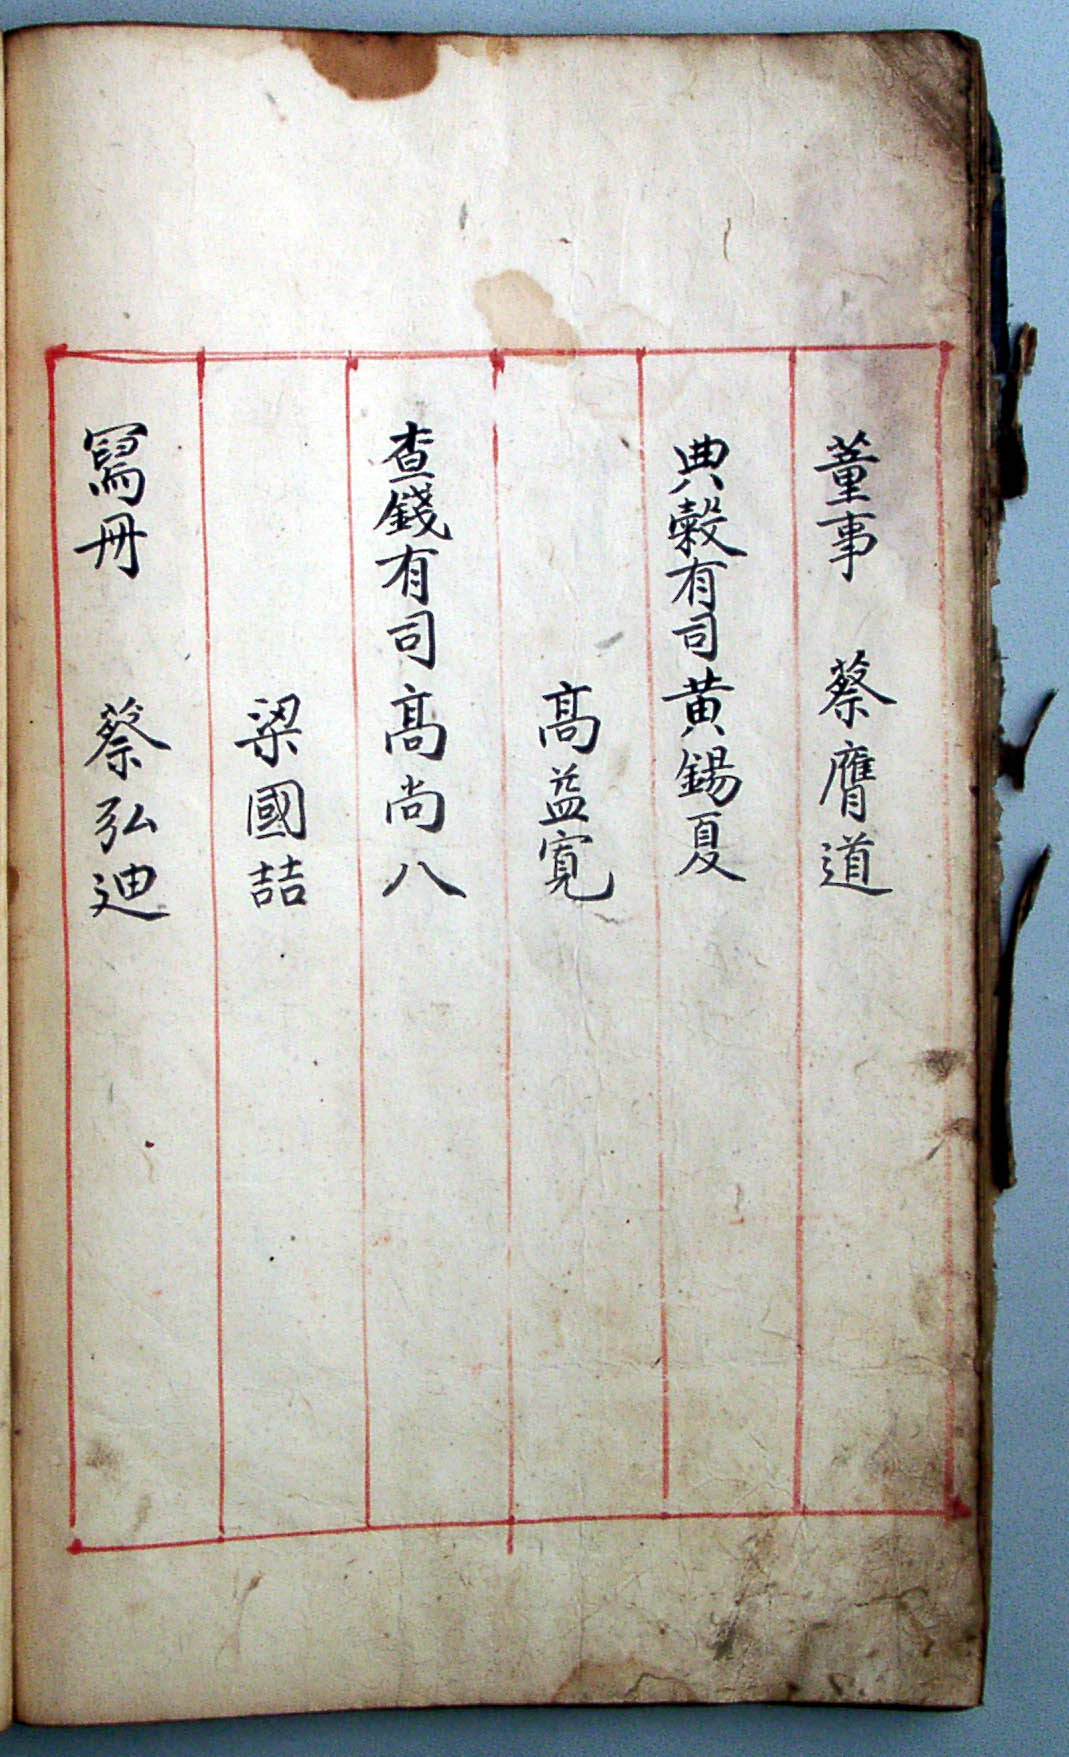 董事 蔡膺道
典穀有司黄錫夏
高益寬
查錢有司高尚八
梁國喆
寫冊 蔡弘迪